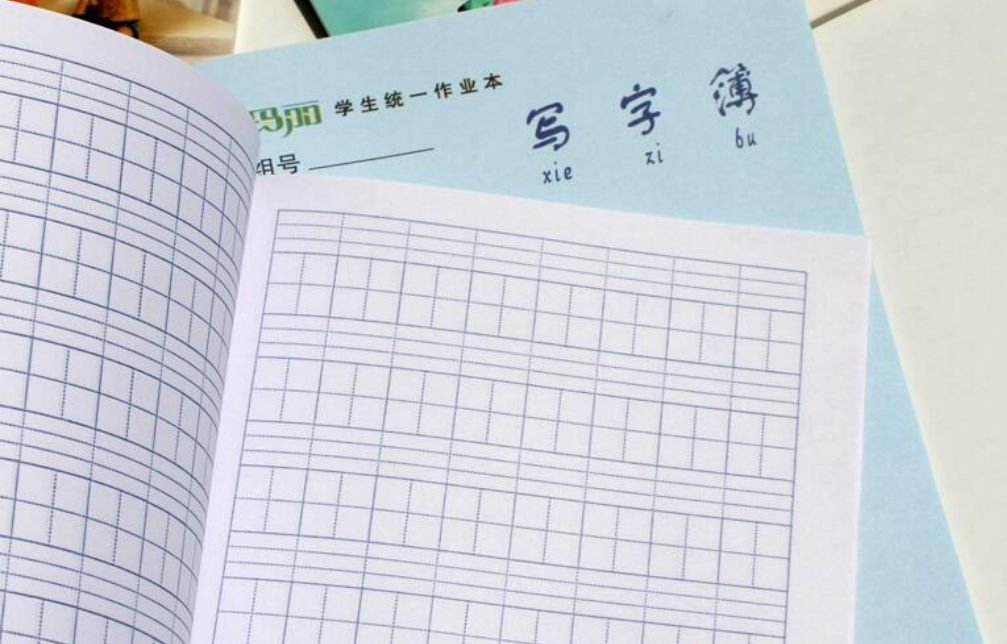 学生统一作业本
组号
写字簿
xie zi bu